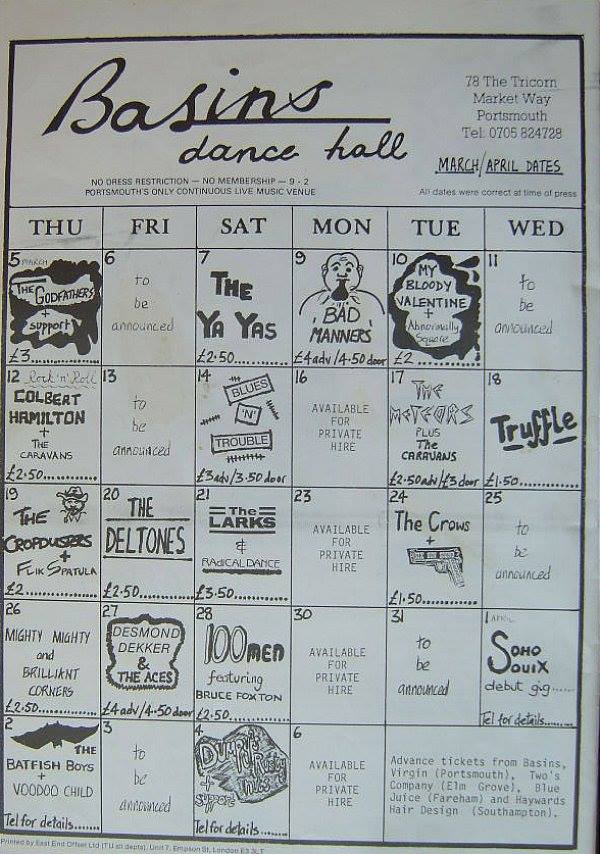 Basins
dance hall
78 The Tricorn
Market Way
Portsmouth
Tel: 0705 824728
MARCH/APRIL DATES
NO DRESS RESTRICTION — NO MEMBERSHIP — 9 - 2
PORTSMOUTH'S ONLY CONTINUOUS LIVE MUSIC VENUE
All dates were correct at time of press
THU FRI SAT MON TUE WED
5 MARCH
THE
GODFATHERS
+
support
£3
6
to
be
announced
7
THE
YA YAS
£2.50
9
BAD
MANNERS
£4adv/4.50 door
10
MY
BLOODY
VALENTINE
+
Abnormally
Square
£2
11
to
be
announced
12 Rock 'n' Roll
COLBERT
HAMILTON
+
THE
CARAVANS
£2.50
13
to
be
announced
14
BLUES
'N'
TROUBLE
£3adv/3.50 door
16
AVAILABLE
FOR
PRIVATE
HIRE
17
THE
METEORS
PLUS
The
CARAVANS
£2.50adv/£3 door
18
Truffle
£1.50
19
THE
CROPDUSTERS
+
FLIK SPATULA
£2
20
THE
DELTONES
£2.50
21
The
LARKS
&
RADICAL DANCE
£3.50
23
AVAILABLE
FOR
PRIVATE
HIRE
24
The Crows
+
£1.50
25
to
be
announced
26
MIGHTY MIGHTY
and
BRILLIANT
CORNERS
£2.50
27
DESMOND
DEKKER
&
THE ACES
£4adv/4.50door
28
100 MEN
featuring
BRUCE FOXTON
£2.50
30
AVAILABLE
FOR
PRIVATE
HIRE
31
to
be
announced
1 APRIL
SOHO
SQUIX
debut gig
Tel for details
2
THE
BATFISH BOYS
+
VOODOO CHILD
Tel for details
3
to
be
announced
4
DUMPY'S
RUSTY
NUTS
+
support
Tel for details
6
AVAILABLE
FOR
PRIVATE
HIRE
Advance tickets from Basins,
Virgin (Portsmouth), Two's
Company (Elm Grove), Blue
Juice (Fareham) and Haywards
Hair Design (Southampton).
Printed by East End Offset Ltd (TU all depts), Unit 7, Empson St, London E3 3LT